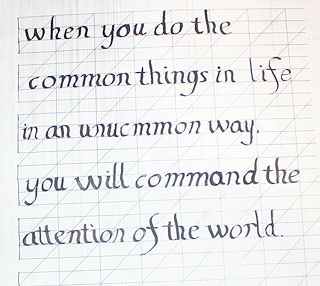 when you do the
common things in life
in an unucmmon way.
you will command the
attention of the world.